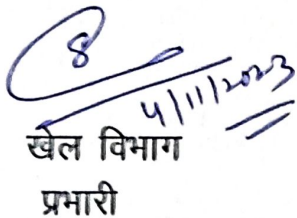 4/11/2023
खेल विभाग
प्रभारी